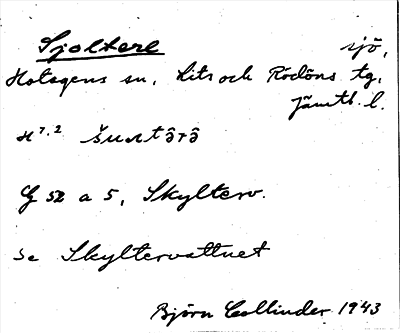 Sjoltere sjö,
Hotagens sn. Lits och Rödöns tg.
Jämtl. l.
H 7.2
G 52 a 5, Skylterv.
se Skyltervattnet
Björn Collinder 1943